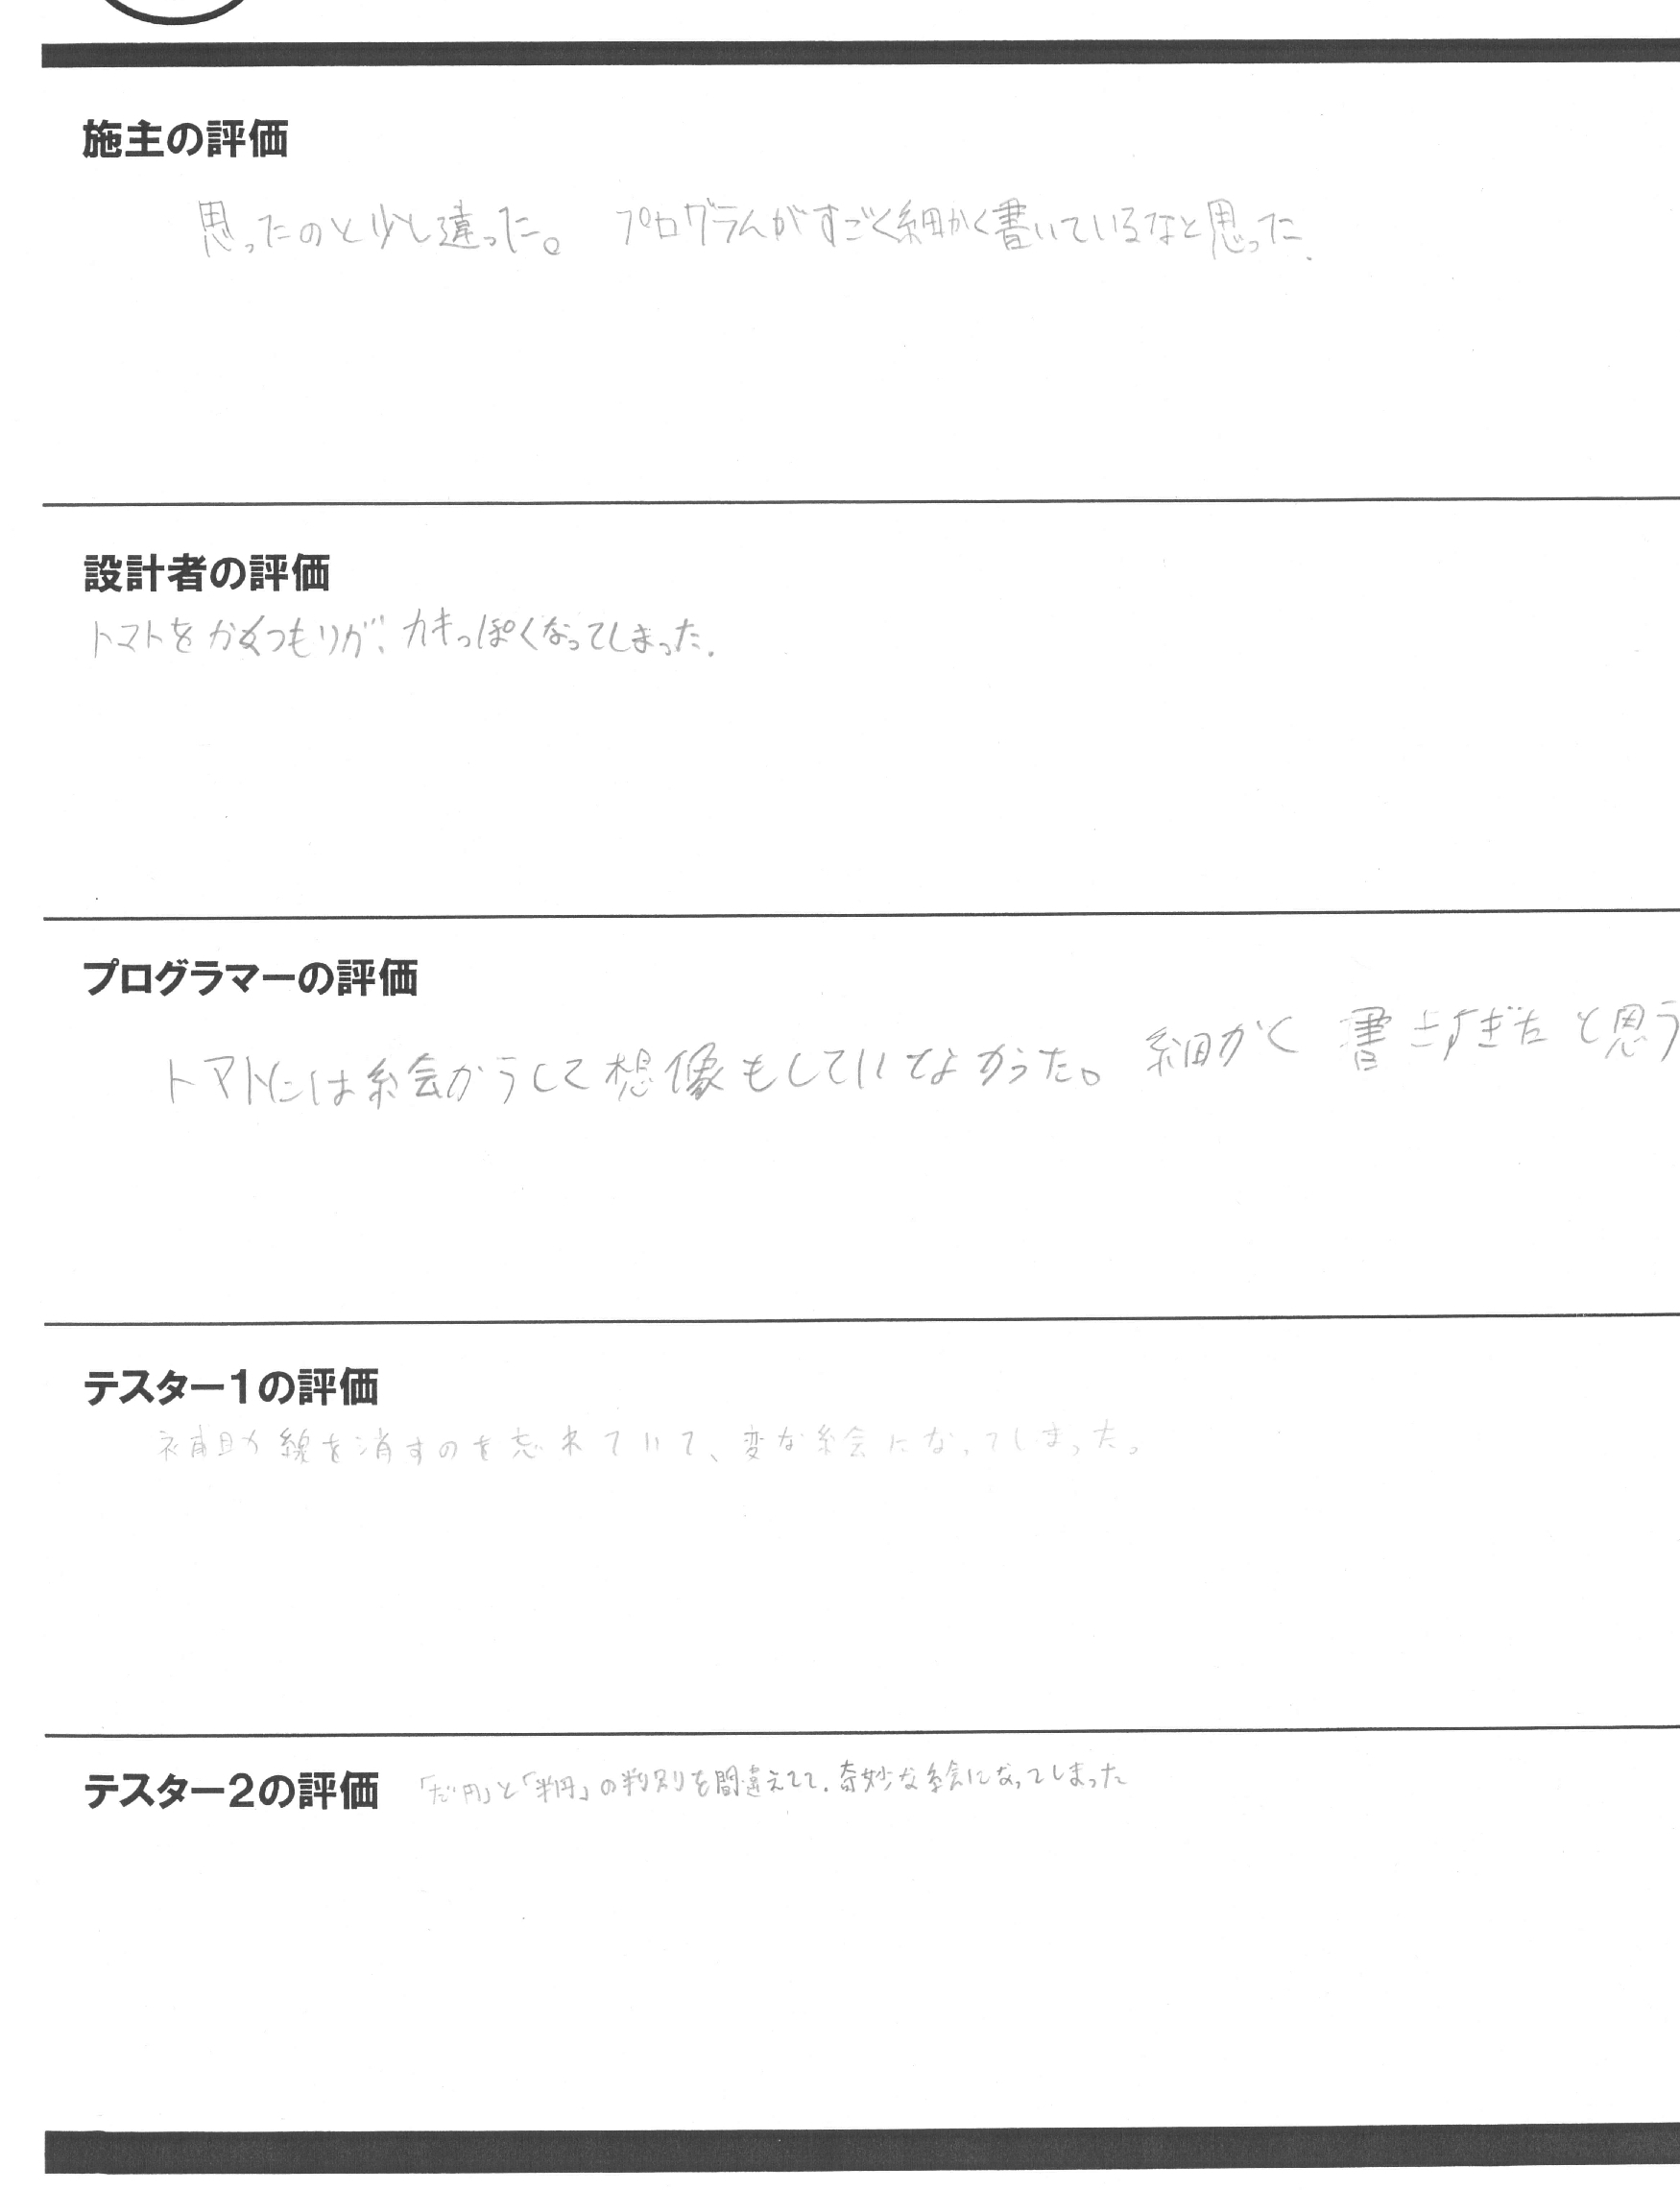 施主の評価
思ったのと少し違った。 プログラムがすごく細かく書いているなと思った.
設計者の評価
トマトをかくつもりが、カキっぽくなってしまった.
プログラマーの評価
トマトには絵からして想像もしていてなかった。 細かく 書きすぎた と思う
テスター1の評価
補助線を消すのを忘れていて、変な絵になってしまった。
テスター2の評価 「だ円」と「半円」の判別を間違えてて.奇妙な絵になってしまった